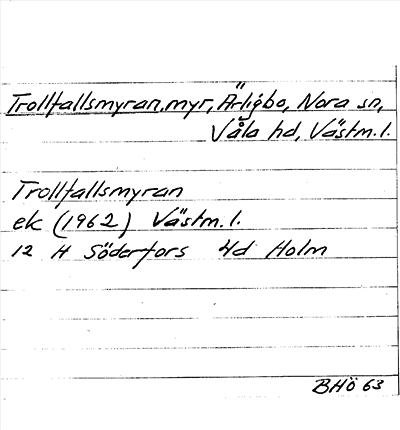 Trollfallsmyran, myr, Ärligbo, Nora sn,
Våla hd, Västm. l.
Trollfallsmyran
ek (1962) Västm. l.
12 H Söderfors 4d Holm
BHö 63